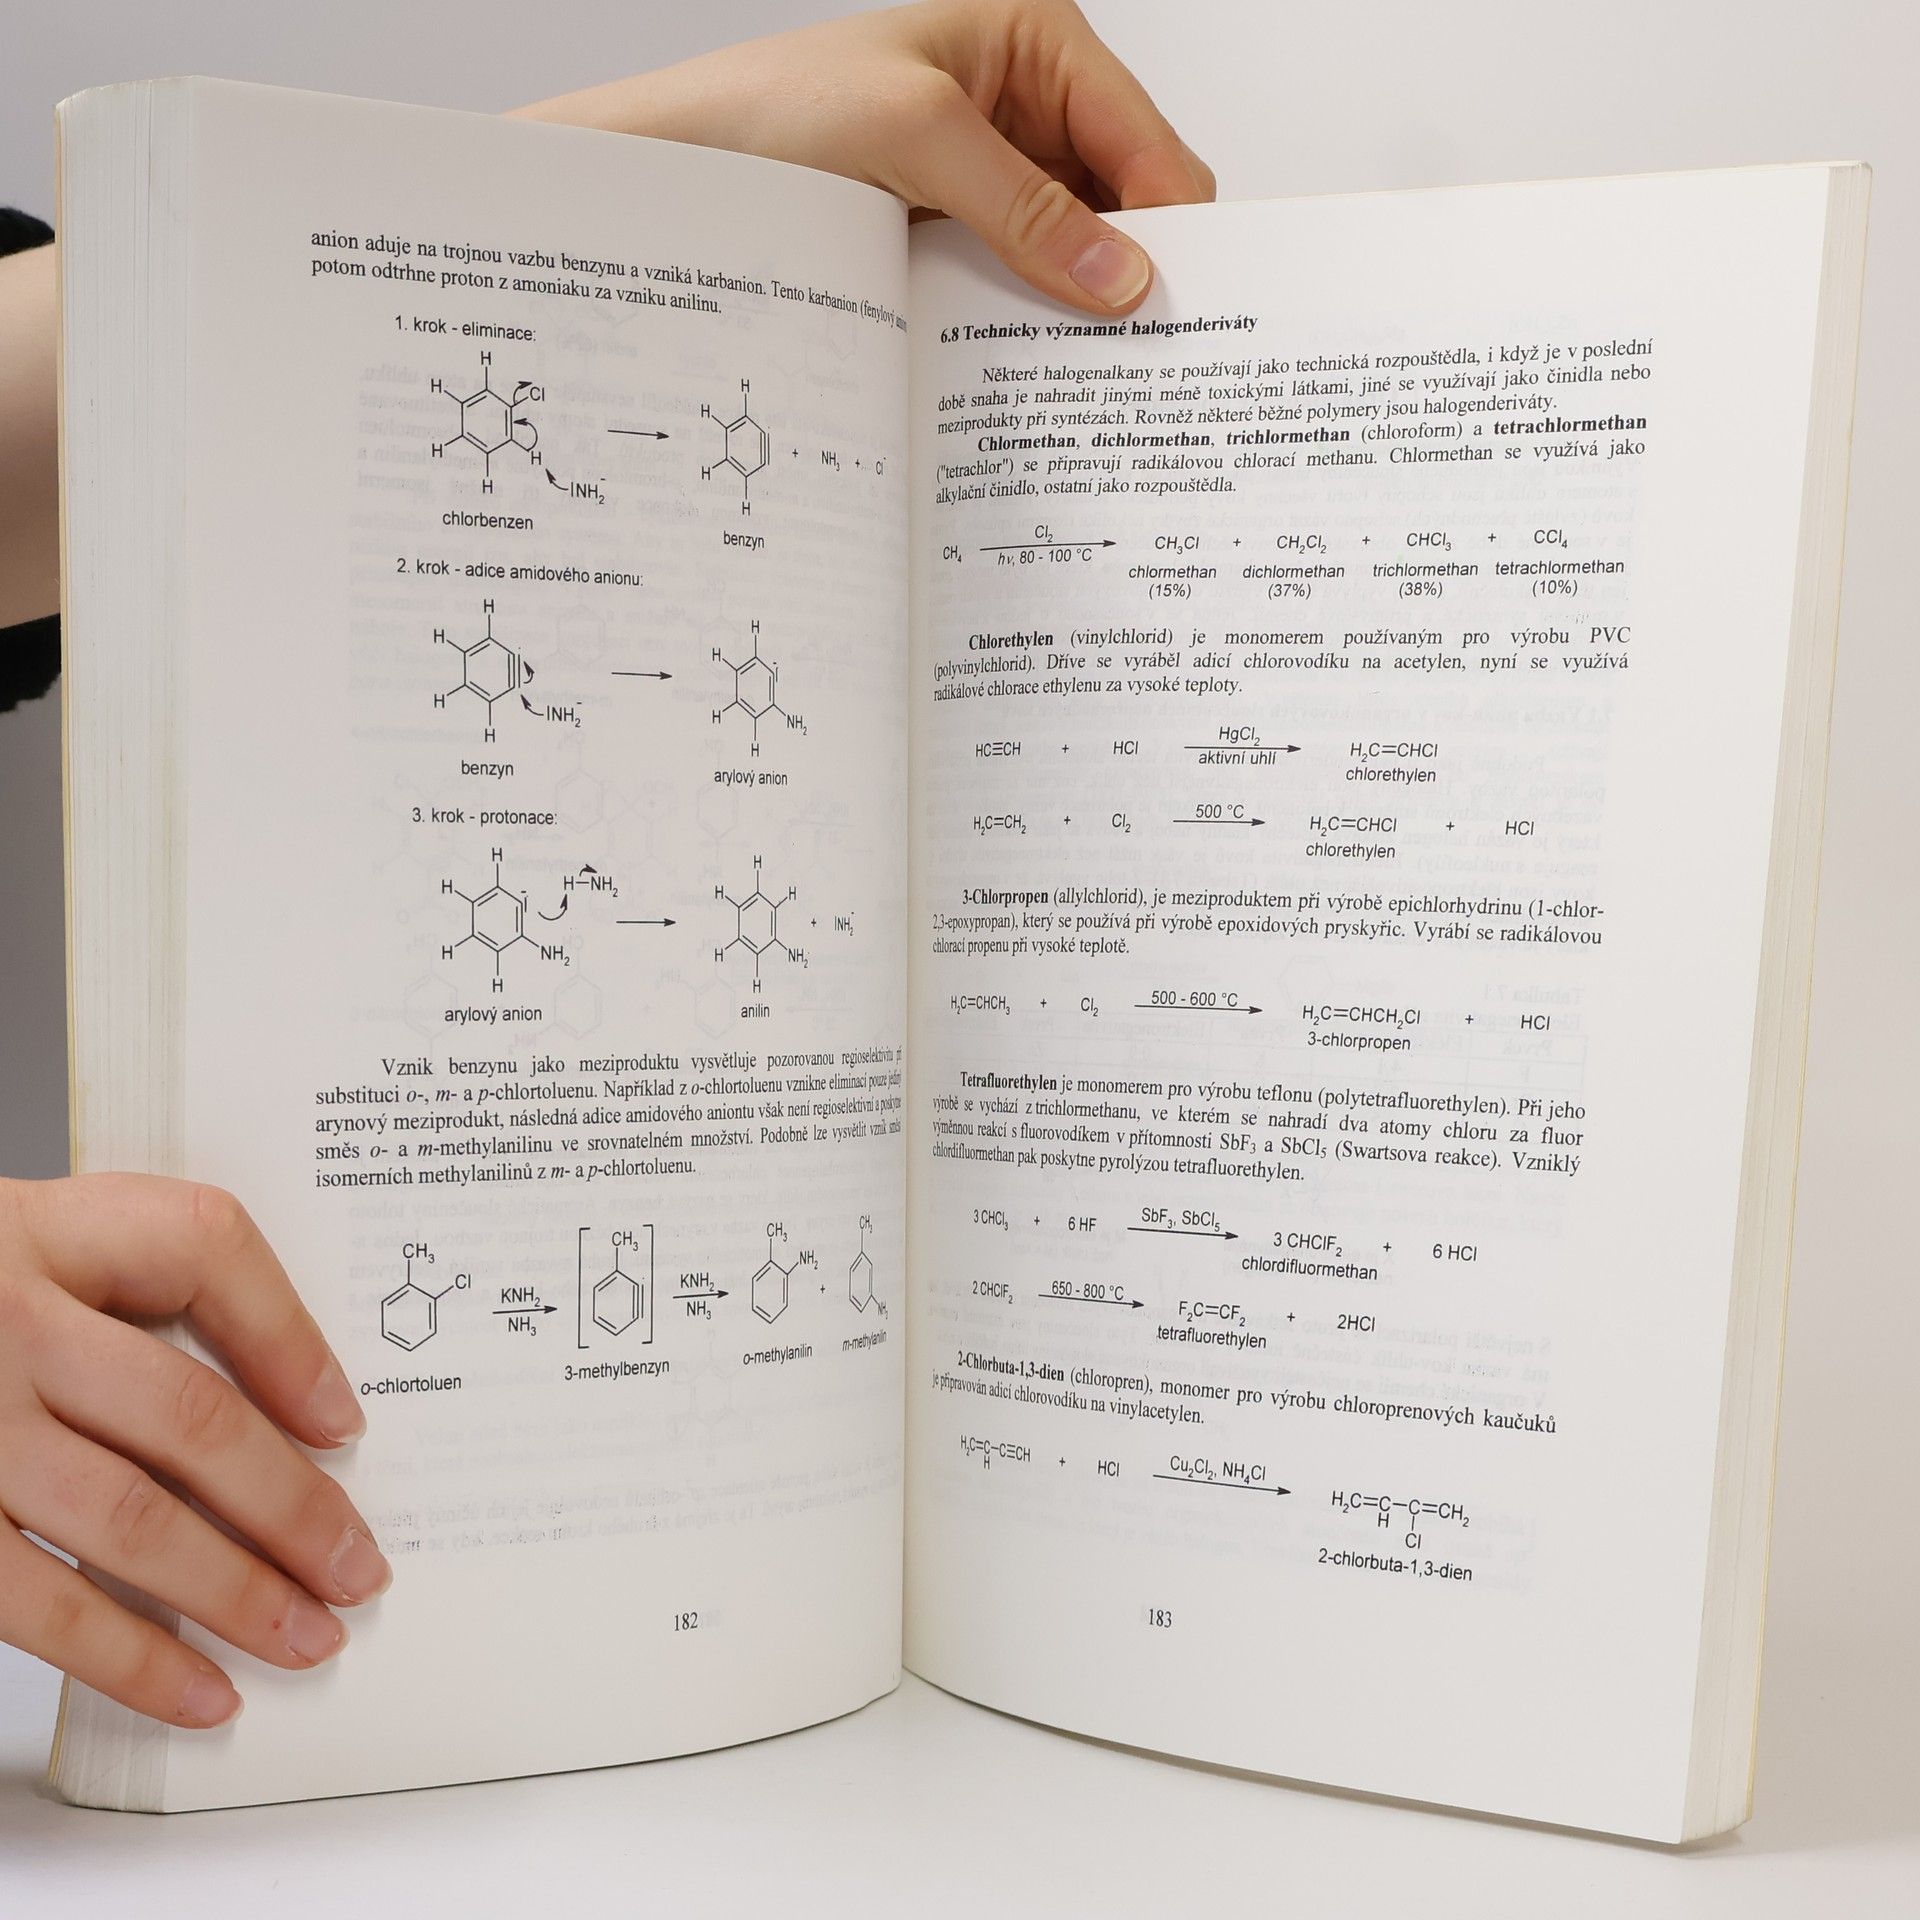 anion aduje na trojnou vazbu benzynu a vzniká karbanion. Tento karbanion (fenylový
potom odtrhne proton z amoniaku za vzniku anilinu.
1. krok - eliminace:
H
H
Cl
H
H
H
INH₂⁻
chlorbenzen
H
H
H
H
+ NH₃ + Cl⁻
benzyn
2. krok - adice amidového anionu:
H
H
H
H
INH₂⁻
benzyn
H
H
H
H
NH₂
arylový anion
3. krok - protonace:
H
H
H
H
NH₂
H–NH₂
arylový anion
H
H
H
H
H
NH₂
+ INH₂⁻
anilin
Vznik benzynu jako meziproduktu vysvětluje pozorovanou regioselektivitu při
substituci o-, m- a p-chlortoluenu. Například z o-chlortoluenu vznikne eliminací pouze jediný
arynový meziprodukt, následná adice amidového aniontu však není regioselektivní a poskytne
směs o- a m-methylanilinu ve srovnatelném množství. Podobně lze vysvětlit vznik směsi
isomerních methylanilinů z m- a p-chlortoluenu.
CH₃
Cl
KNH₂
NH₃
CH₃
KNH₂
NH₃
CH₃
NH₂
+
CH₃
NH₂
o-chlortoluen
3-methylbenzyn
o-methylanilin
m-methylanilin
182
6.8 Technicky významné halogenderiváty
Některé halogenalkany se používají jako technická rozpouštědla, i když je v poslední
době snaha je nahradit jinými méně toxickými látkami, jiné se využívají jako činidla nebo
meziprodukty při syntézách. Rovněž některé běžné polymery jsou halogenderiváty.
Chlormethan, dichlormethan, trichlormethan (chloroform) a tetrachlormethan
("tetrachlor") se připravují radikálovou chlorací methanu. Chlormethan se využívá jako
alkylační činidlo, ostatní jako rozpouštědla.
CH₄ Cl₂ CH₃Cl + CH₂Cl₂ + CHCl₃ + CCl₄
hν, 80 - 100 °C
chlormethan dichlormethan trichlormethan tetrachlormethan
(15%) (37%) (38%) (10%)
Chlorethylen (vinylchlorid) je monomerem používaným pro výrobu PVC
(polyvinylchlorid). Dříve se vyráběl adicí chlorovodíku na acetylen, nyní se využívá
radikálové chlorace ethylenu za vysoké teploty.
HC≡CH + HCl HgCl₂ H₂C=CHCl
aktivní uhlí
chlorethylen
H₂C=CH₂ + Cl₂ 500 °C H₂C=CHCl + HCl
chlorethylen
3-Chlorpropen (allylchlorid), je meziproduktem při výrobě epichlorhydrinu (1-chlor-
2,3-epoxypropan), který se používá při výrobě epoxidových pryskyřic. Vyrábí se radikálovou
chlorací propenu při vysoké teplotě.
H₂C=CHCH₃ + Cl₂ 500 - 600 °C H₂C=CHCH₂Cl + HCl
3-chlorpropen
Tetrafluorethylen je monomerem pro výrobu teflonu (polytetrafluorethylen). Při jeho
výrobě se vychází z trichlormethanu, ve kterém se nahradí dva atomy chloru za fluor
výměnnou reakcí s fluorovodíkem v přítomnosti SbF₃ a SbCl₅ (Swartsova reakce). Vzniklý
chlordifluormethan pak poskytne pyrolýzou tetrafluorethylen.
3 CHCl₃ + 6 HF SbF₃, SbCl₅ 3 CHClF₂ + 6 HCl
chlordifluormethan
2 CHClF₂ 650 - 800 °C F₂C=CF₂ + 2HCl
tetrafluorethylen
2-Chlorbuta-1,3-dien (chloropren), monomer pro výrobu chloroprenových kaučuků
je připravován adicí chlorovodíku na vinylacetylen.
H₂C=C–C≡CH + HCl Cu₂Cl₂, NH₄Cl H₂C=C–C=CH₂
H
H Cl
2-chlorbuta-1,3-dien
183